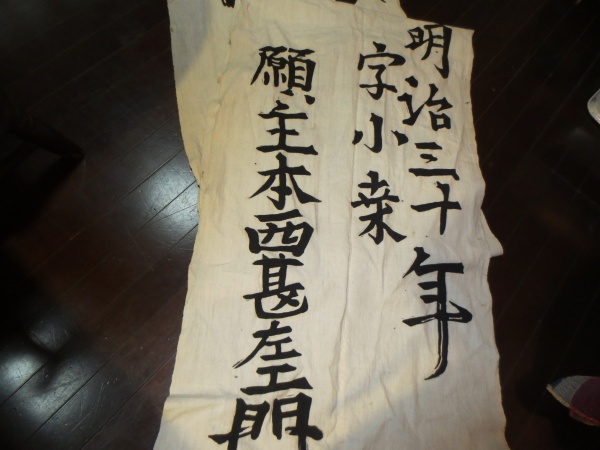 明治三十年
字小桒
願主本西甚左エ門